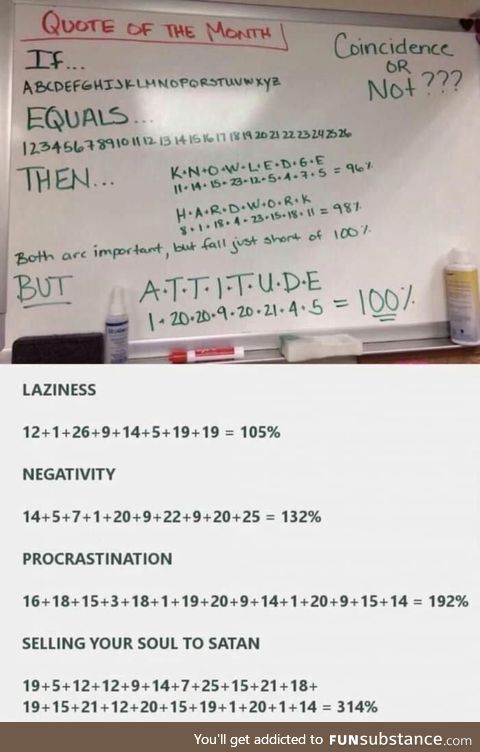 QUOTE OF THE MONTH
Coincidence
OR
Not ???
If...
ABCDEFGHIJKLMNOPQRSTUVWXYZ
EQUALS...
1 2 3 4 5 6 7 8 9 10 11 12 13 14 15 16 17 18 19 20 21 22 23 24 25 26
THEN...
K·N·O·W·L·E·D·G·E
11+14+15+23+12+5+4+7+5 = 96%
H·A·R·D·W·O·R·K
8+1+18+4+23+15+18+11 = 98%
Both are important, but fall just short of 100%
BUT
A·T·T·I·T·U·D·E
1+20+20+9+20+21+4+5 = 100%
LAZINESS
12+1+26+9+14+5+19+19 = 105%
NEGATIVITY
14+5+7+1+20+9+22+9+20+25 = 132%
PROCRASTINATION
16+18+15+3+18+1+19+20+9+14+1+20+9+15+14 = 192%
SELLING YOUR SOUL TO SATAN
19+5+12+12+9+14+7+25+15+21+18+
19+15+21+12+20+15+19+1+20+1+14 = 314%
You'll get addicted to FUNsubstance.com